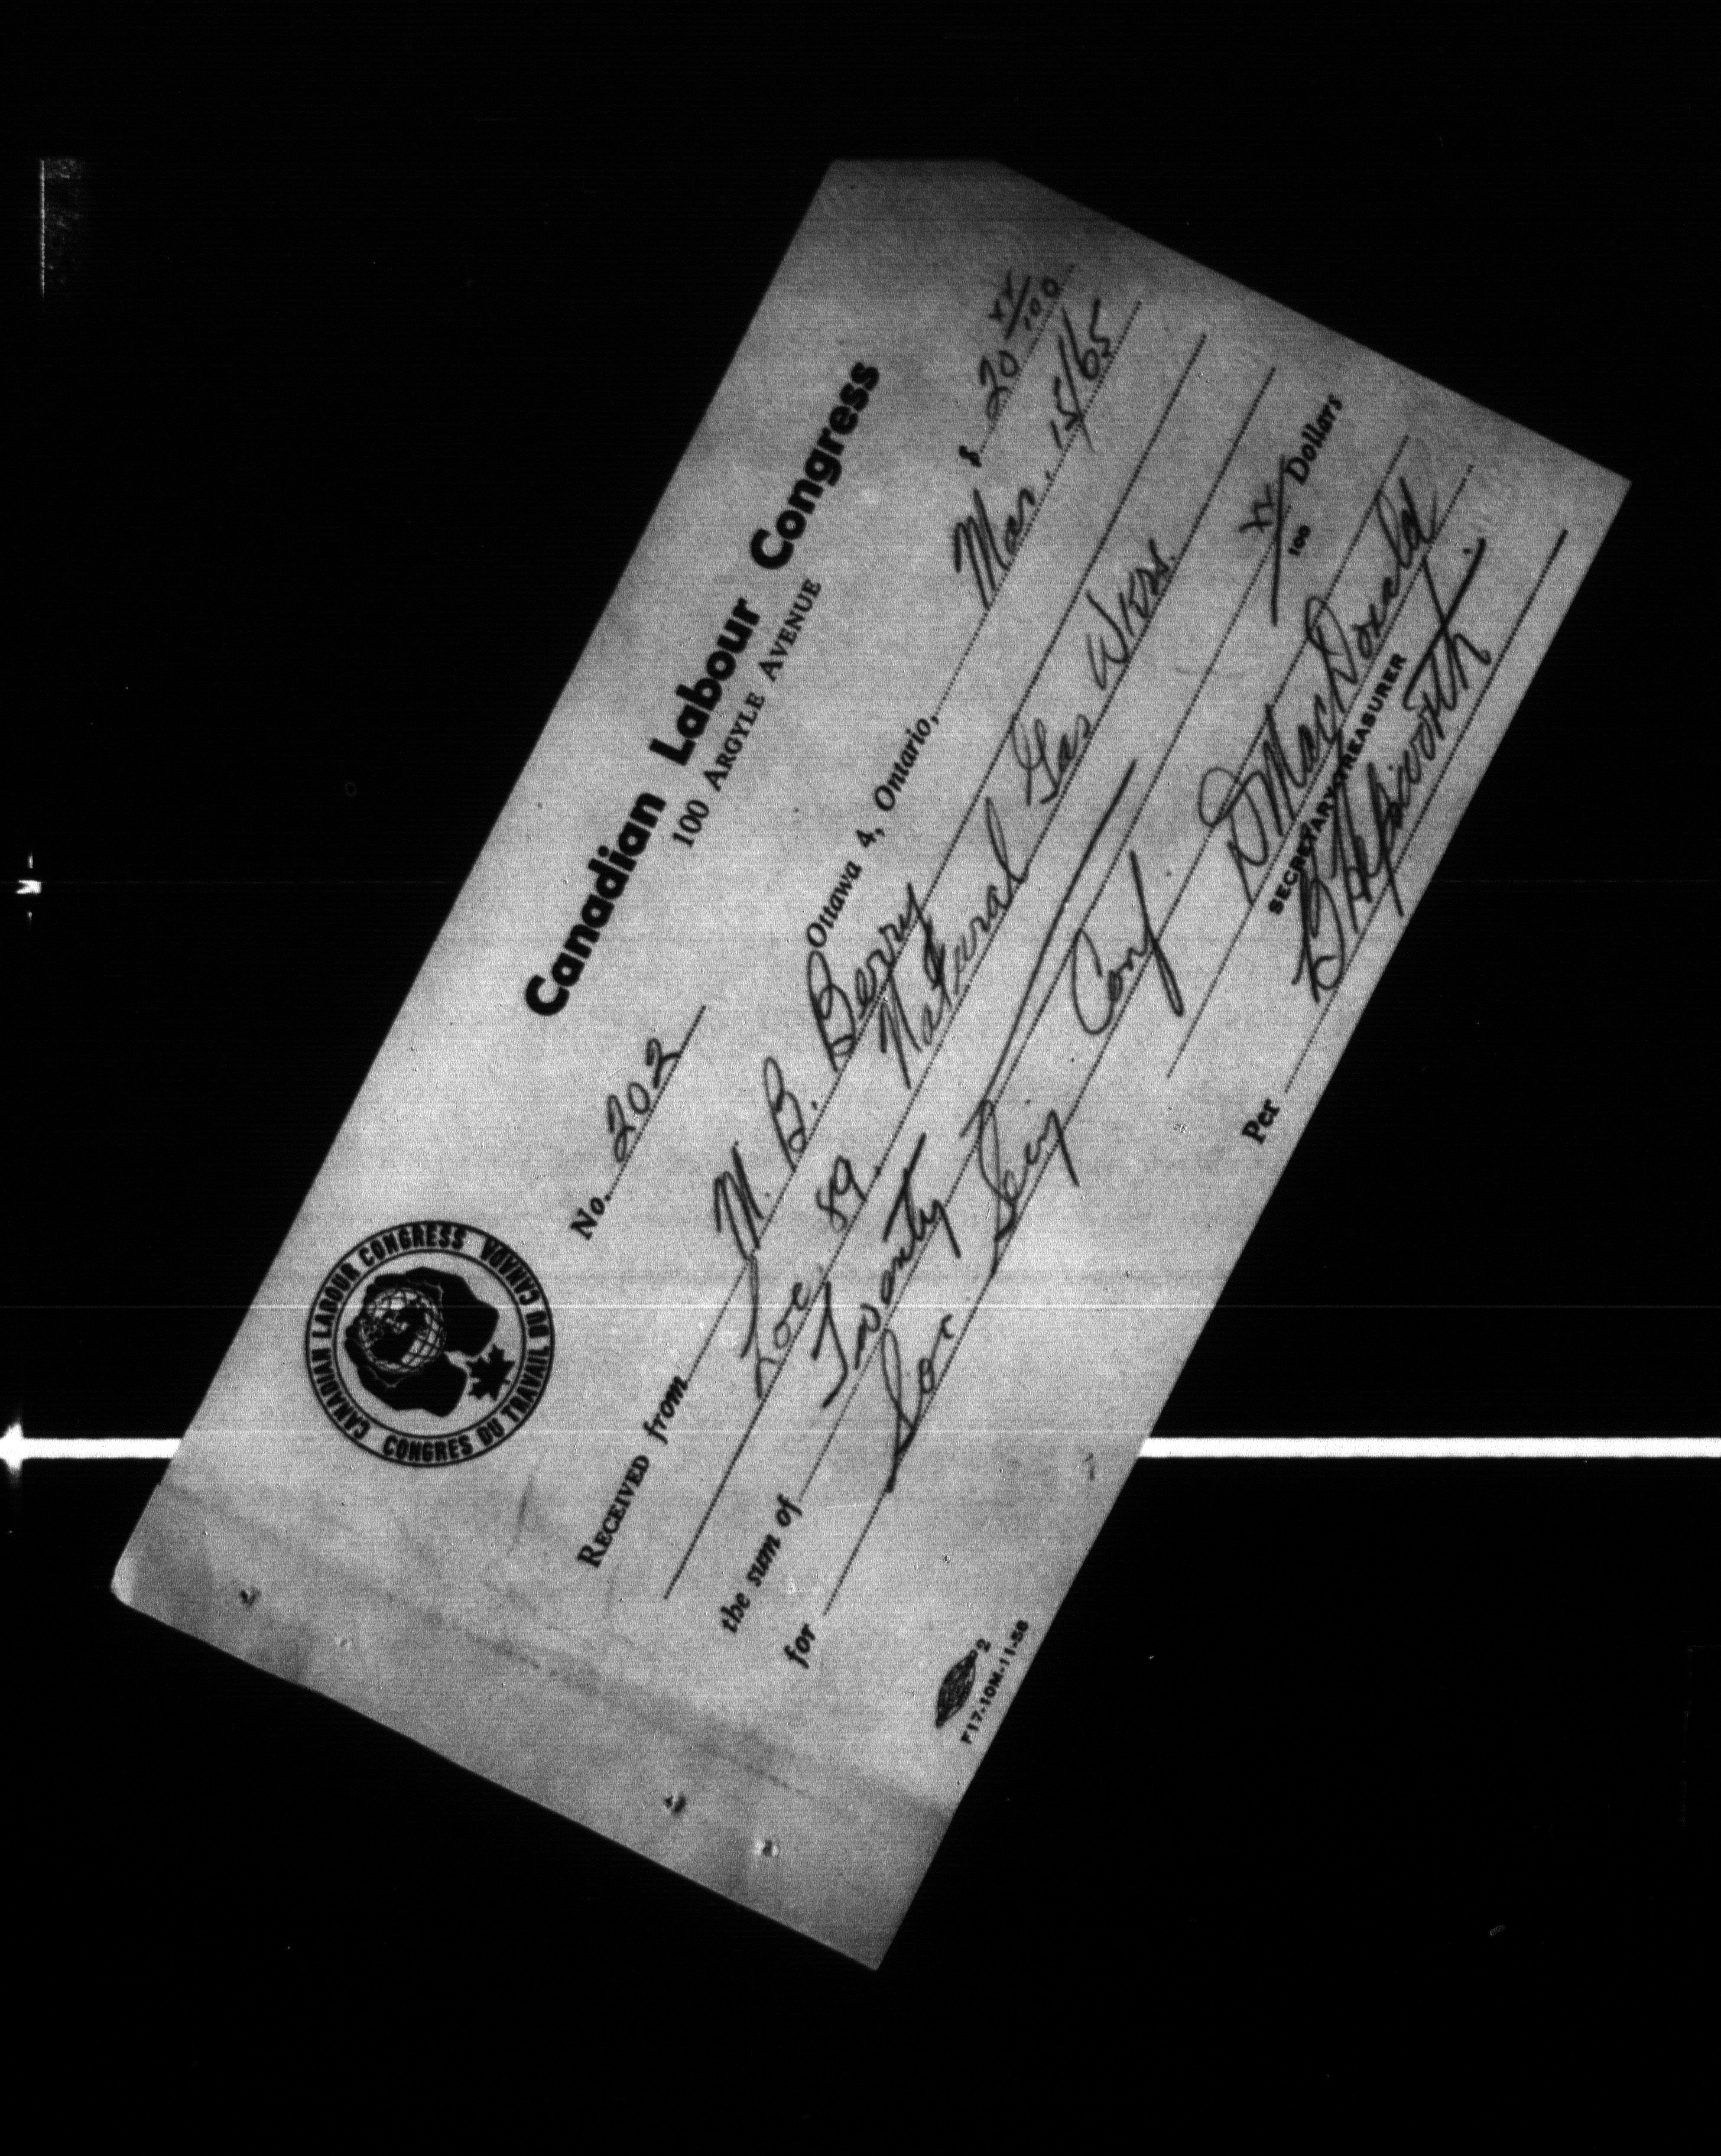 CANADIAN LABOUR CONGRESS
CONGRES DU TRAVAIL DU CANADA
Canadian Labour Congress
100 ARGYLE AVENUE
No. 202
$ 20 xx/100
Ottawa 4, Ontario, Mar. 15/65
RECEIVED from M. B. Berry
Loc. 89. Natural Gas Wkrs.
the sum of Twenty xx/100 Dollars
for Soc Sec Conf.
D MacDonald
SECRETARY-TREASURER
Per B Hepworth
2
F17-10M-11-56